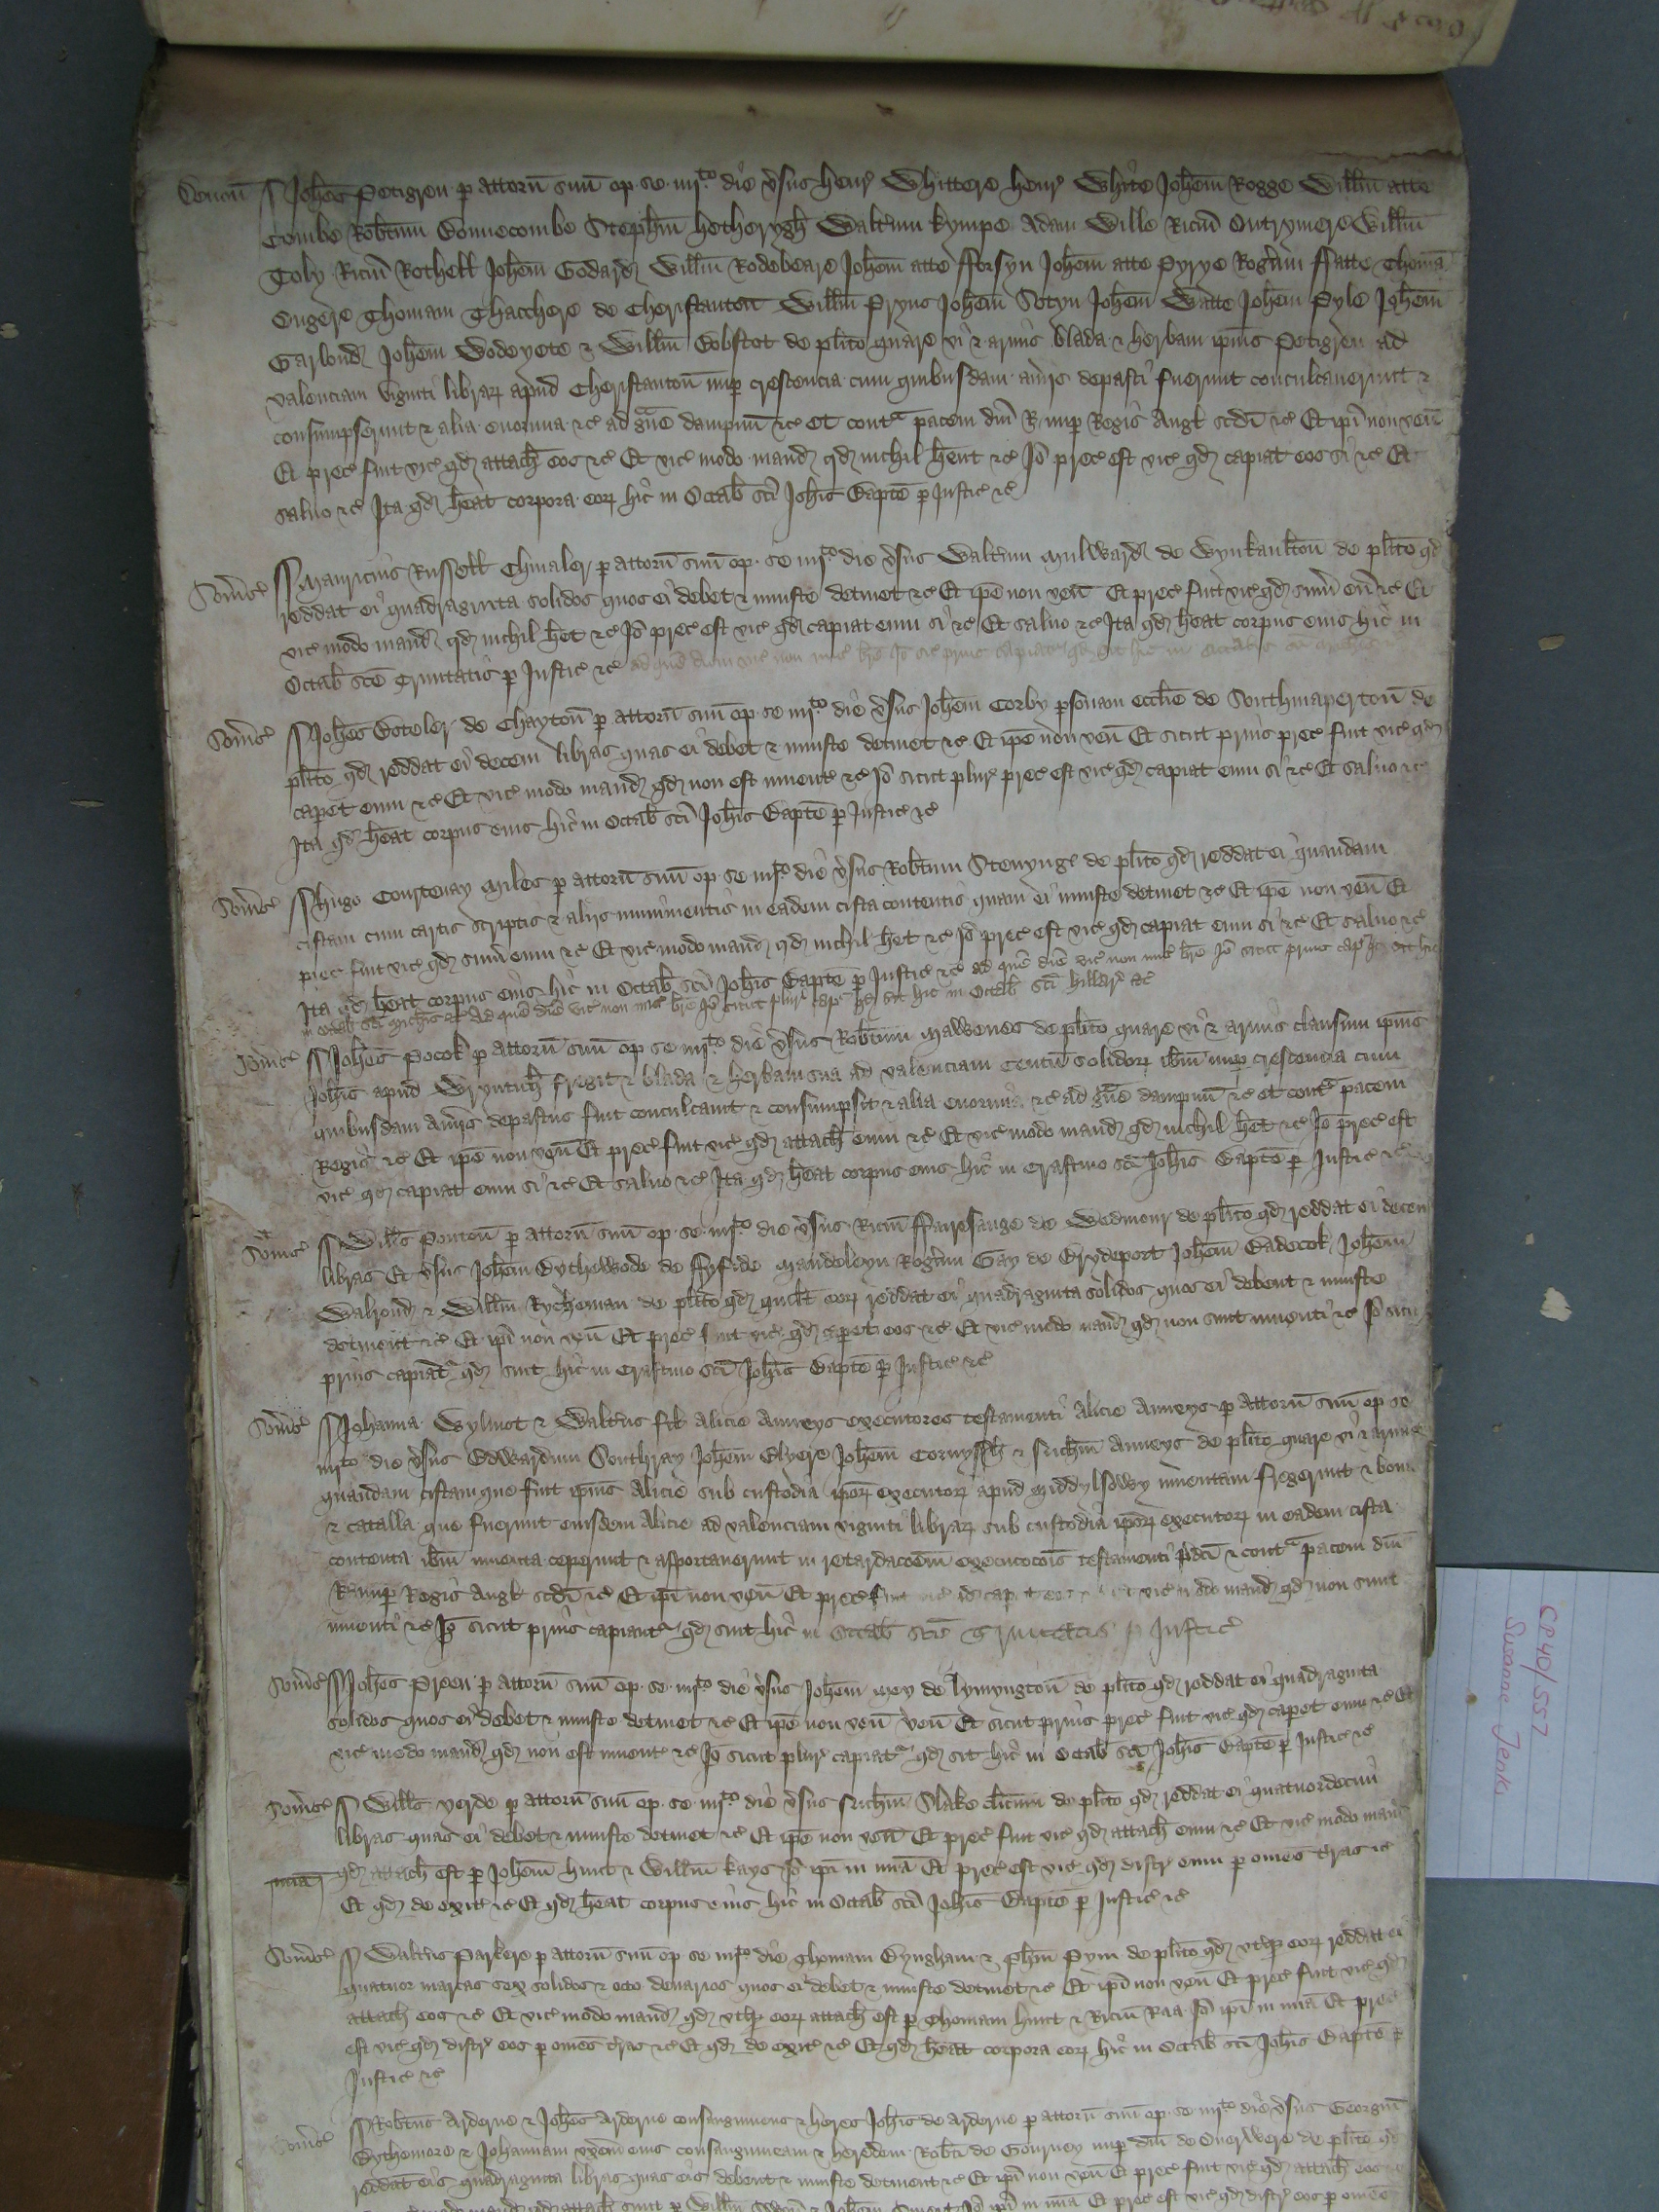 Devon Joh̄es Petigreu p attorñ suū op se iiijto die v̄sus Henr Whittere Henr White Joh̄em Rogge Will̄m atte
Combe Rob̄tum Bonnecombe Steph̄m Hetherygh Walt̄um Kympe Adam Wille Ric̄m Will̄m
Toby Ric̄m Rothell Joh̄em Godard Will̄m Rodebeare Joh̄em atte fforsyn Joh̄em atte Pyrye Roḡum ffatte Thomā
Thomam Thacchere de Cheristanton Will̄m Pryns Joh̄em Sotyn Joh̄em Watte Joh̄em Pyle Joh̄em
Garlond Joh̄em Wodeyete & Will̄m Bobstot de pl̄ito quare vi & armis blada & herbam ip̄ius Petigreu ad
valenciam viginti librar apud Cheristanton nup crescencia cum quibusdam aūiis depasti fuerunt conculcauerunt &
consumpserunt & alia enormia &c ad gūe dampnū &c et contra pacem dn̄i R nup Regis Angl sc̄di &c Et ip̄i non veñ
Et prec fuit vic qd attach eos &c Et vic modo mand qd nichil h̄ent &c Jō prec est vic qd capiat eos si &c Et
saluo &c Ita qd h̄eat corpora eor hic in Octab̄ sc̄i Joh̄is Bapt̄e p Justic &c
Som̄s Mauricius Russell Chiualer p attorñ suū op se iiijto die v̄sus Walt̄um Mulward de Wynkaulton de pl̄ito qd
reddat ei quadraginta solidos quos ei debet & iniuste detinet &c Et ip̄e non veñ Et prec fuit vic qd sum̄ eū &c Et
vic modo mand qd nichil h̄et &c Jō prec est vic qd capiat eum si &c Et saluo &c Ita qd h̄eat corpus eius hic in
Octab̄ sc̄e Trinitatis p Justic &c ad quē diem vic non mis br̄e Jō sic prius capiatr qd sit hic in Octabis
Som̄s Joh̄es Hosteler de Chayton p attorñ suū op se iiijto die v̄sus Joh̄em Corby p̄sonam eccl̄ie de Southmaperton de
pl̄ito qd reddat ei decem libras quas ei debet & iniuste detinet &c Et ip̄e non veñ Et sicut prius prec fuit vic qd
capet eum &c Et vic modo mand qd non est inuent &c Jō sicut plur prec est vic qd capiat eum si &c Et saluo &c
Ita qd h̄eat corpus eius hic in Octab̄ sc̄i Joh̄is Bapt̄e p Justic &c
Som̄s Hugo Courtenay Miles p attorñ suū op se iiijto die v̄sus Rob̄tum Stenynge de pl̄ito qd reddat ei quandam
cistam cum cartis scriptis & aliis munimentis in eadem cista contentis quam ei iniuste detinet &c Et ip̄e non veñ Et
prec fuit vic qd sum̄ eum &c Et vic modo mand qd nichil h̄et &c Jō prec est vic qd capiat eum si &c Et saluo &c
Ita qd h̄eat corpus eius hic in Octab̄ sc̄i Joh̄is Bapt̄e p Justic &c ad quē diē vic non mis br̄e Jō sicut prius capr qd sit hic
in octab̄ sc̄i Mich̄is &c Ad quē diē vic non mis br̄e Jō sicut plur capr qd sit hic in Octab̄ sc̄i Hillar &c
Som̄s Joh̄es Pocok p attorñ suū op se iiijto die v̄sus Rob̄tum Mawenes de pl̄ito quare vi & armis clausum ip̄ius
Joh̄is apud fregit & blada & herbam sua ad valenciam Centū solidor ib̄m nup crescencia cum
quibusdam aūiis depastus fuit conculcauit & consumpsit & alia enormia &c ad gūe dampnū &c et contra pacem
Regis &c Et ip̄e non veñ Et prec fuit vic qd attach eum &c Et vic modo mand qd nichil h̄et &c Jō prec est
vic qd capiat eum si &c Et saluo &c Ita qd h̄eat corpus eius hic in crastino sc̄i Joh̄is Bapt̄e p Justic &c
Som̄s Will̄s Ponton p attorñ suū op se iiijto die v̄sus Ric̄m ffairesange de Wedmour de pl̄ito qd reddat ei decem
libras Et v̄sus Joh̄em Bythewode de ffyfide Maudeleyn Roḡum Gay de Brydeport Joh̄em Badecok Joh̄em
Walrond & Will̄m Rycheman de pl̄ito qd quil̄t eor reddat ei quadraginta solidos quos ei debent & iniuste
detinent &c Et ip̄i non veñ Et prec fuit vic qd capet eos &c Et vic modo mand qd non sunt inuenti &c Jō sicut
prius capiantr qd sint hic in crastino sc̄i Joh̄is Bapt̄e p Justic &c
Som̄s Johanna Wylmot & Walt̄us fil Alicie Anneys executores testamenti Alicie Anneys p attorñ suū op se
iiijto die v̄sus Edwardum Southray Joh̄em Glyere Joh̄em Cornyssh & Mich̄m Anneys de pl̄ito quare vi & armis
quandam cistam que fuit ip̄ius Alicie sub custodia ip̄or executor apud Middylsowy inuentam fregerunt & bona
& catalla que fuerunt eiusdem Alicie ad valenciam viginti librar sub custodia ip̄or executor in eadem cista
contenta ib̄m inuenta ceperunt & asportauerunt in retardac̄oem execuc̄ois testamenti p̄dc̄i & contra pacem dn̄i
R nup Regis Angl sc̄di &c Et ip̄i non veñ Et prec fuit vic qd cap eos &c Et vic modo mand qd non sunt
inuenti &c Jō sicut prius capiantr qd sint hic in Octab̄ sc̄e Trinitatis p Justic
Som̄s Joh̄es Preen p attorñ suū op se iiijto die v̄sus Joh̄em Mey de lymyngton de pl̄ito qd reddat ei quadraginta
solidos quos ei debet & iniuste detinet &c Et ip̄e non veñ veñ Et sicut prius prec fuit vic qd capet eum &c Et
vic modo mand qd non est inuent &c Jō sicut plur capiatr qd sit hic in Octab̄ sc̄i Joh̄is Bapt̄e p Justic &c
Som̄s Will̄s Yerde p attorñ suū op se iiijto die v̄sus Mich̄m Slake cl̄icum de pl̄ito qd reddat ei quatuordecim
libras quas ei debet & iniuste detinet &c Et ip̄e non veñ Et prec fuit vic qd attach eum &c Et vic modo mand
mīa qd attach est p Joh̄em Hunt & Will̄m Kays Jō ip̄i in mīa Et prec est vic qd distr eum p om̄es t̄ras &c
Et qd de exit &c Et qd h̄eat corpus eius hic in Octab̄ sc̄i Joh̄is Bapt̄e p Justic &c
Som̄s Walt̄us Parkere p attorñ suū op se iiijto die Thomam Byngham & Ph̄m Pym de pl̄ito qd ut̄q eor reddat ei
quatuor marcas sex solidos & octo denarios quos ei debet & iniuste detinet &c Et ip̄i non veñ Et prec fuit vic qd
attach eos &c Et vic modo mand qd ut̄q eor attach est p Thomam Hunt & Ric̄m Raa Jō ip̄i in mīa Et prec
est vic qd distr eos p om̄es t̄ras &c Et qd de exit &c Et qd h̄eat corpora eor hic in Octab̄ sc̄i Joh̄is Bapt̄e p
Justic &c
Som̄s Rob̄tus Arderne & Joh̄es Arderne consanguineus & heres Joh̄is de Arderne p attorñ suū op se iiijto die v̄sus Georgiū
Bythemore & Johannam ux̄em eius consanguineam & heredem Rob̄ti de Gourney nup dn̄i de Ouerwere de pl̄ito qd
reddat eis quadraginta libras quas eis debent & iniuste detinent &c Et ip̄i non veñ Et prec fuit vic qd attach eos &c
mand qd attach sunt p Will̄m & Joh̄em Jō ip̄i in mīa Et prec est vic qd distr eos p om̄es
CP40/557
Susanne Jenks